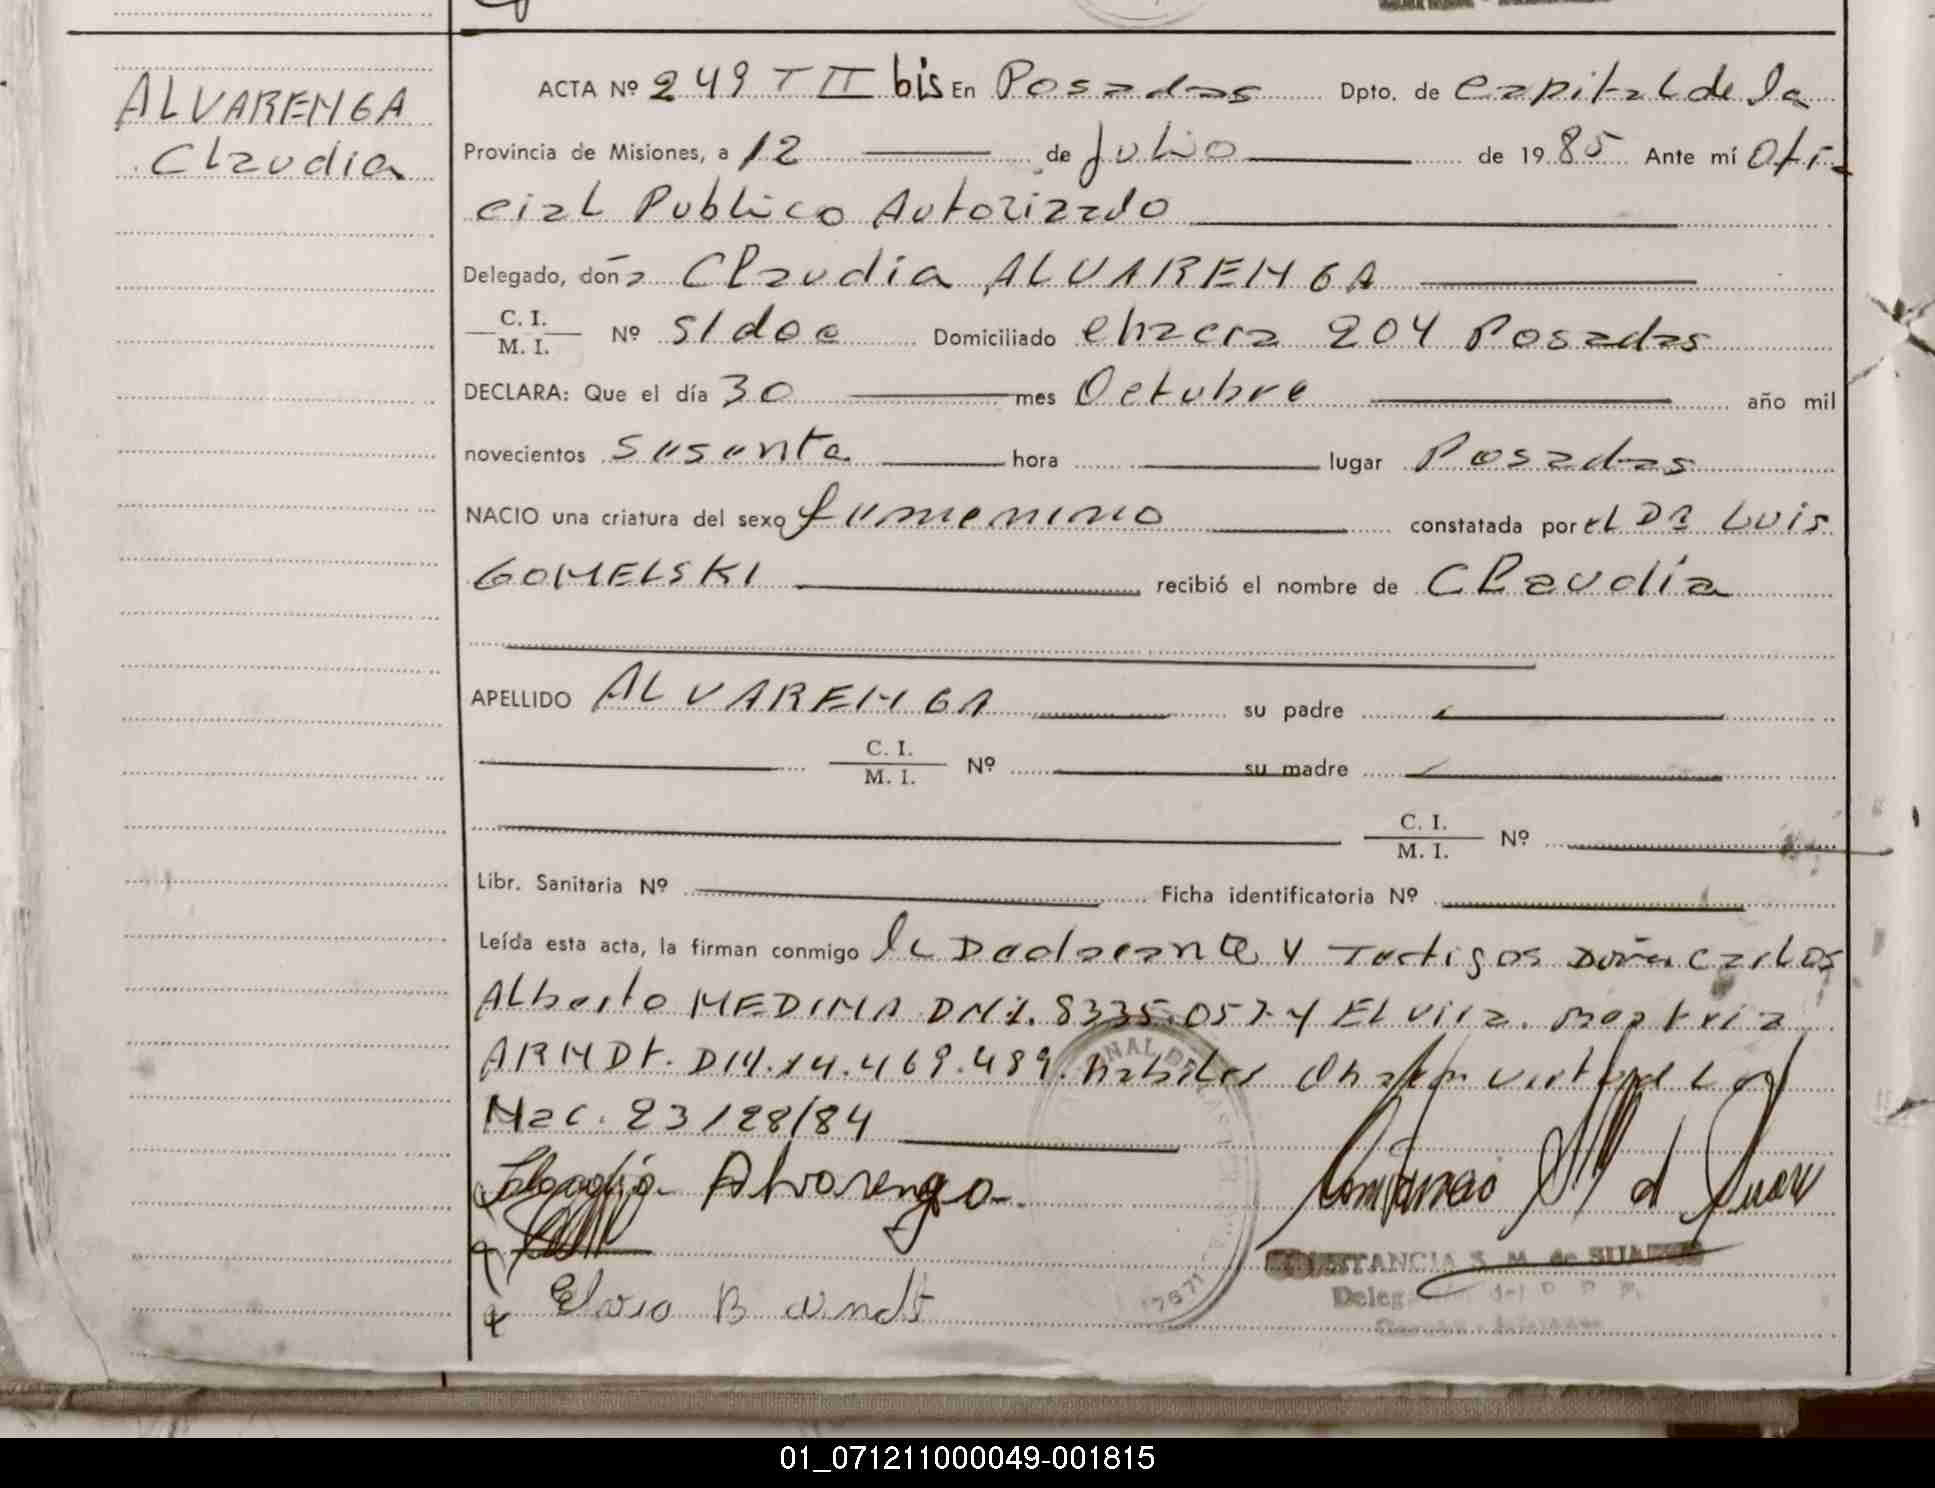 ALVARENGA
Claudia
ACTA Nº 249 T II bis En Posadas Dpto. de Capital de la
Provincia de Misiones, a 12 de Julio de 1985 Ante mí Ofi-
cial Publico Autorizado
Delegado, doña Claudia ALVARENGA
C. I.
M. I. Nº s/doc Domiciliado Chacra 204 Posadas
DECLARA: Que el día 30 mes Octubre año mil
novecientos sesenta hora lugar Posadas
NACIO una criatura del sexo femenino constatada por el DR Luis
GOMELSKI recibió el nombre de Claudia
APELLIDO ALVARENGA su padre
C. I.
M. I. Nº su madre
C. I.
M. I. Nº
Libr. Sanitaria Nº Ficha identificatoria Nº
Leída esta acta, la firman conmigo la Declarante y Testigos Carlos
Alberto MEDINA DNI. 8335.057 y Elvira Beatriz
ARNDT. DNI. 14.469.489. habiles
Nac. 23/28/84
Alvarenga
Elvira B Arndt
CONSTANCIA S. M. de SUAREZ